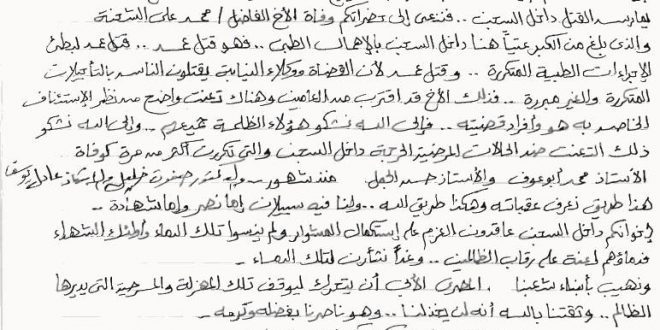 يمارسه القتل داخل السجن .. فننعى إلى حضراتكم وفاة الأخ الفاضل / محمد على السعنة
والذى بلغ من الكبر عتياً هنا داخل السجن بالإهمال الطبى .. فهو قتل عمد .. قتل عمد لبطئ
الإجراءات الطبية المتكررة .. وقتل عمد لأن القضاة ووكلاء النيابة يقتلون الناس بالتأجيلات
المتكررة والغير مبررة .. فذلك الأخ قد اقترب من العامين وهناك تعنت واضح من نظر الإستئناف
الخاص به هو وأفراد قضيته .. فإلى الله نشكو هؤلاء الظلمة جميعهم .. وإلى الله نشكو
ذلك التعنت ضد الحالات المرضية الحرجة داخل السجن والتى تكررت أكثر من مرة كوفاة
الأستاذ محمد أبوعوف والأستاذ حسن الجمل منذ شهور .. والدكتور صفوت خليل والأستاذ عادل يوسف
هذا طريق نعرف عقباته وهكذا طريق الله .. ولنا فيه سبيلان إما نصر وإما شهادة ..
إخوانكم داخل السجن عاقدون العزم على إستكمال المشوار ولم ينسوا تلك الدماء وأولئك الشهداء
فدماؤهم لعنة على رقاب الظالمين .. وغداً نثأرن لتلك الدماء ..
ونهيب بأبناء شعبنا المصرى الأبى أن يتحرك ليوقف تلك المهزلة والمسرحية التى يديرها
الظالم .. وثقتنا بالله أنه لن يخذلنا .. وهو ناصرنا بفضله وكرمه ..